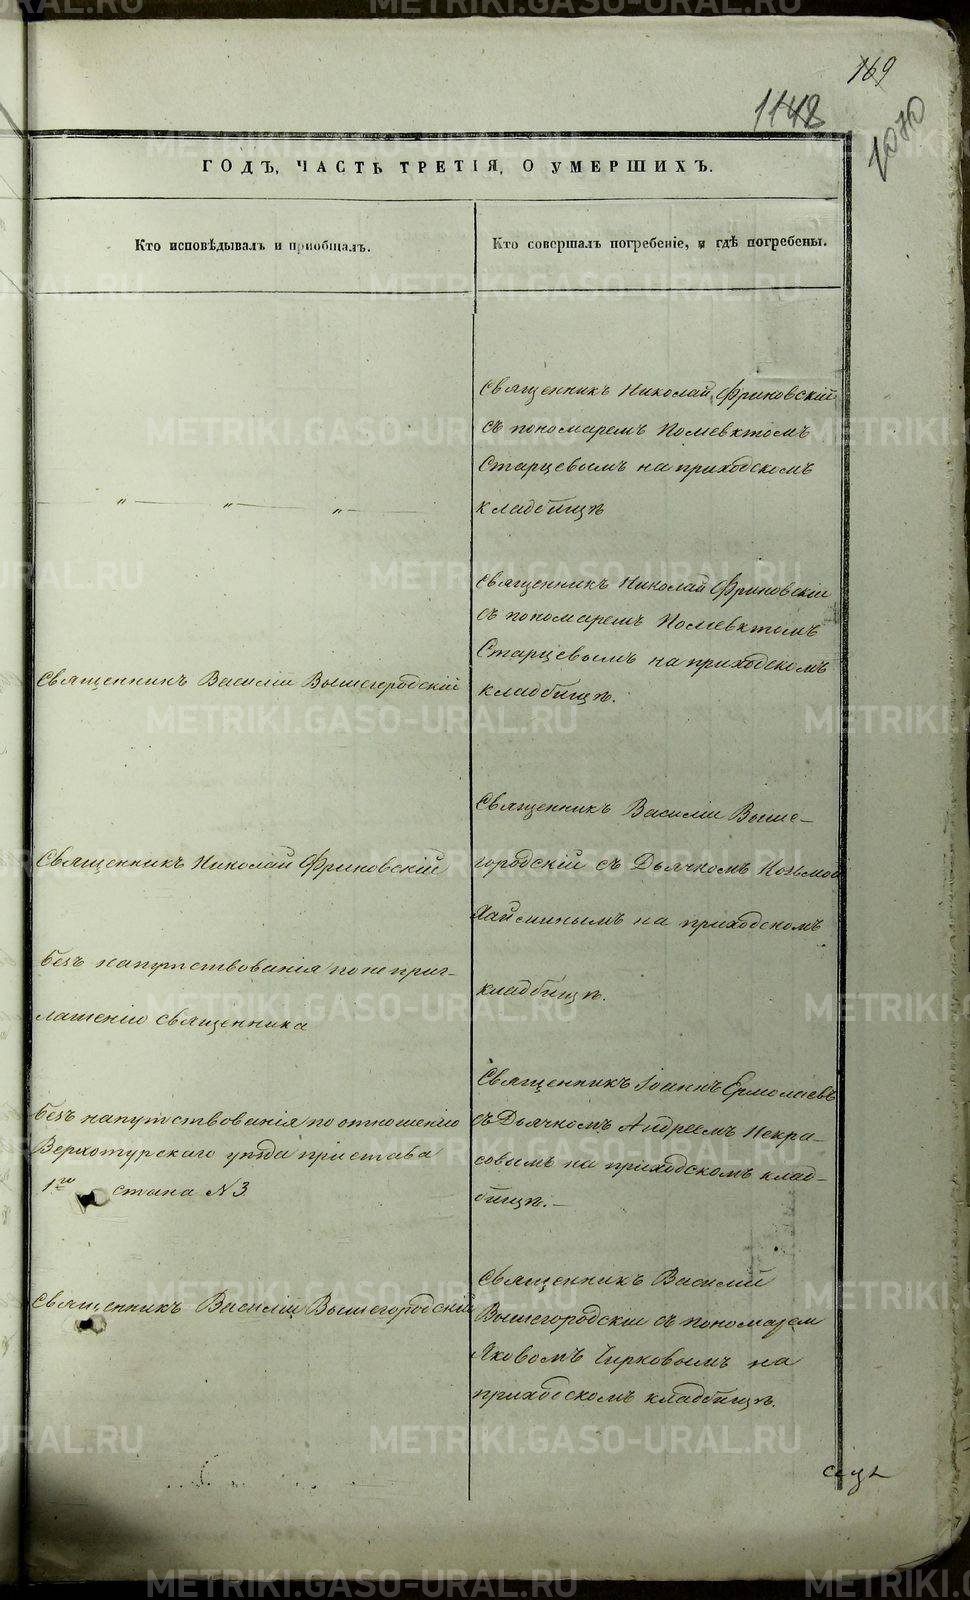 169
1148
1070
ГОДЪ, ЧАСТЬ ТРЕТІЯ, О УМЕРШИХЪ.
Кто исповѣдывалъ и приобщалъ.
Кто совершалъ погребеніе, и гдѣ погребены.
Священникъ Николай Фриновскій
съ пономаремъ Полиевктомъ
Старцевымъ на приходскомъ
кладбищѣ
„ — „ — „ —
Священникъ Николай Фриновскій
съ пономаремъ Полиевктомъ
Старцевымъ на приходскомъ
кладбищѣ.
Священникъ Василій Вышегородскій
Священникъ Василій Выше-
городскій съ Дьячкомъ Козьмой
Хайминымъ на приходскомъ
кладбищѣ.
Священникъ Николай Фриновскій
Безъ напутствованія по не приг-
лашенію священника
Священникъ Іоаннъ Ермолаевъ
съ Дьячкомъ Андреемъ Некра-
совымъ на приходскомъ клад-
бищѣ. —
Безъ напутствованія по отношенію
Верхотурскаго уѣзда пристава
1го стана N 3
Священникъ Василій
Вышегородскій съ пономарем
Яковомъ Чирковымъ на
приходскомъ кладбищѣ.
Священникъ Василій Вышегородскій
METRIKI.GASO-URAL.RU